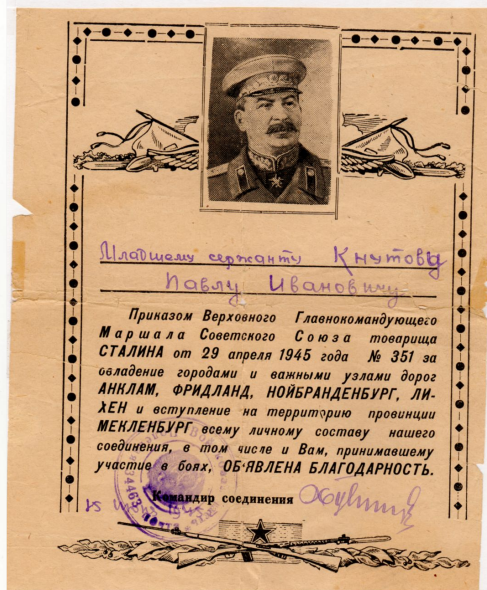 Младшему сержанту Кнутову
Павлу Ивановичу
Приказом Верховного Главнокомандующего
Маршала Советского Союза товарища
СТАЛИНА от 29 апреля 1945 года № 351 за
овладение городами и важными узлами дорог
АНКЛАМ, ФРИДЛАНД, НОЙБРАНДЕНБУРГ, ЛИ-
ХЕН и вступление на территорию провинции
МЕКЛЕНБУРГ всему личному составу нашего
соединения, в том числе и Вам, принимавшему
участие в боях, ОБ'ЯВЛЕНА БЛАГОДАРНОСТЬ.
Командир соединения
34463
1945